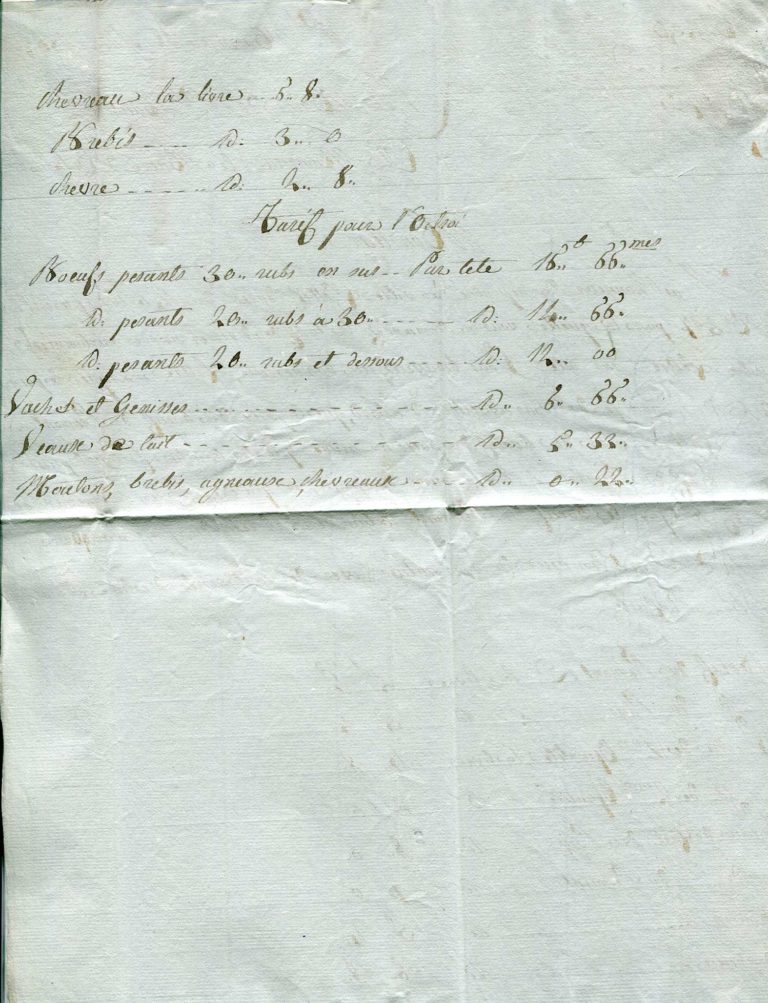 chevreau la livre .. 5.. 8..
Brebis ..... Id: 3.. 0
chevre ...... Id: 2.. 8..
Tarif pour l'Octroi
Boeufs pesants 30.. rubs en sus .. Par tete 16..tt 66..mes
Id: pesants 20.. rubs à 30.. ...... Id: 14.. 66..
Id: pesants 20.. rubs et dessous .... Id: 12.. 00
Vaches et Genisses .............. Id.. 6.. 66..
Veaux de lait .............. Id.. 5.. 33..
Moutons, brebis, agneaux, chevreaux .... Id.. 0.. 22..